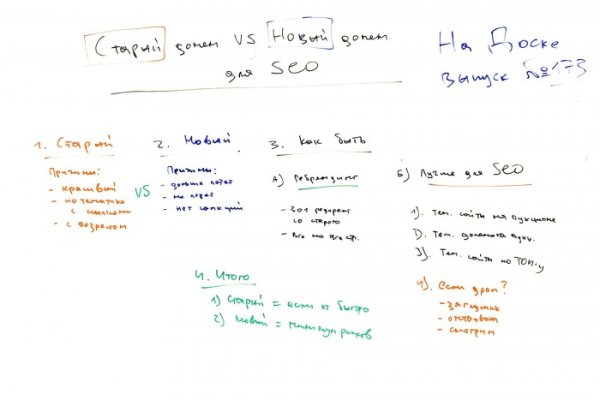 Старый домен VS Новый домен
для SEO
На Доске
выпуск №173
1. Старый
Причины:
- красивый
- по тематике
с ссылками
- с возрастом
VS
2. Новый
Причины:
- дольше
- не
- нет санкций
3. Как быть
А) Ребрендинг
- 301 редирект
со старого
- все на все стр.
Б) Лучше для SEO
1). Тем. сайты на аукционе
2). Тем. домены аукц.
3). Тем. сайты по ТОП-у
4). если дроп?
- заглушка
- отстаивать
- смотрим
4. Итого
1) Старый = если ок быстро
2) Новый = минимум рисков